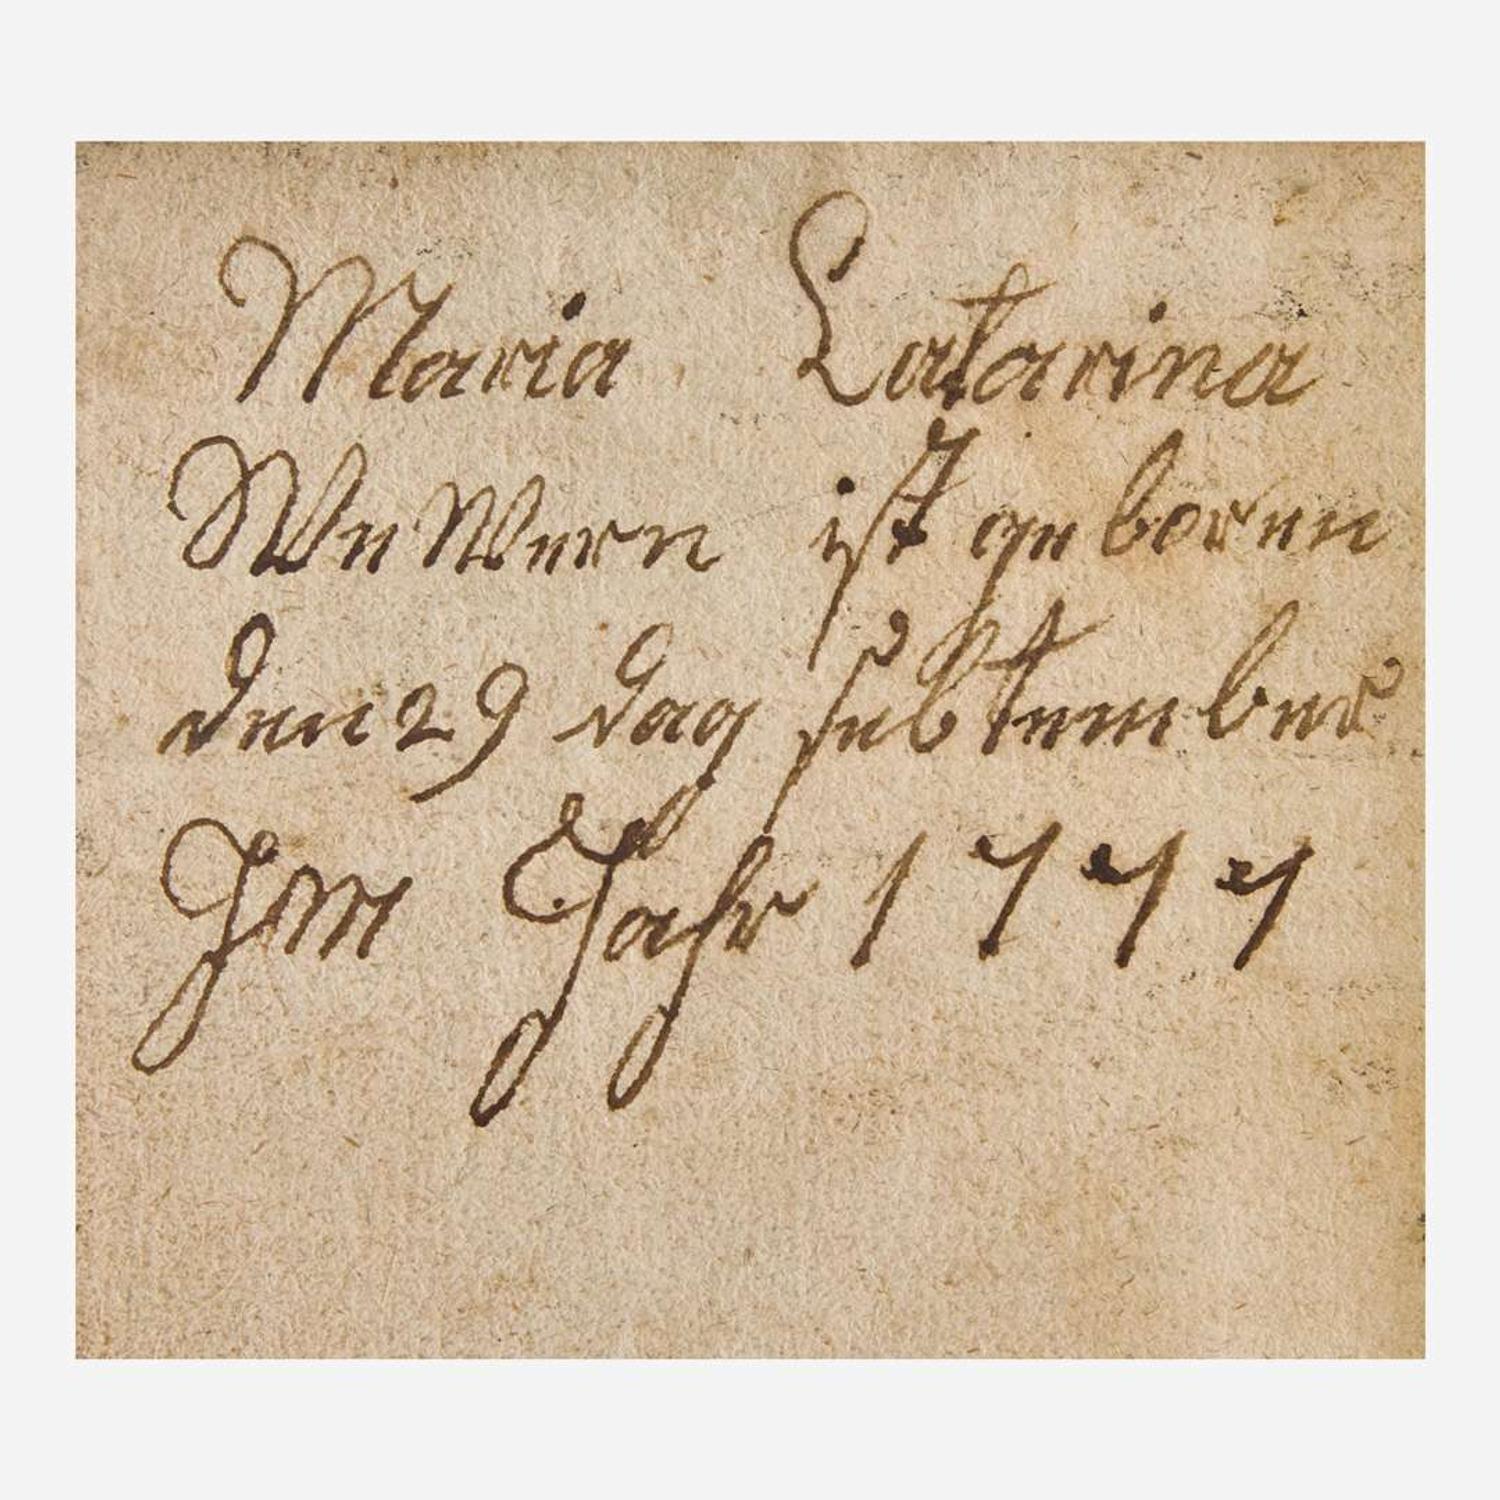 Maria Catarina
WeWern ist geboren
den 29 dag sebtember
Im Jahr 1777